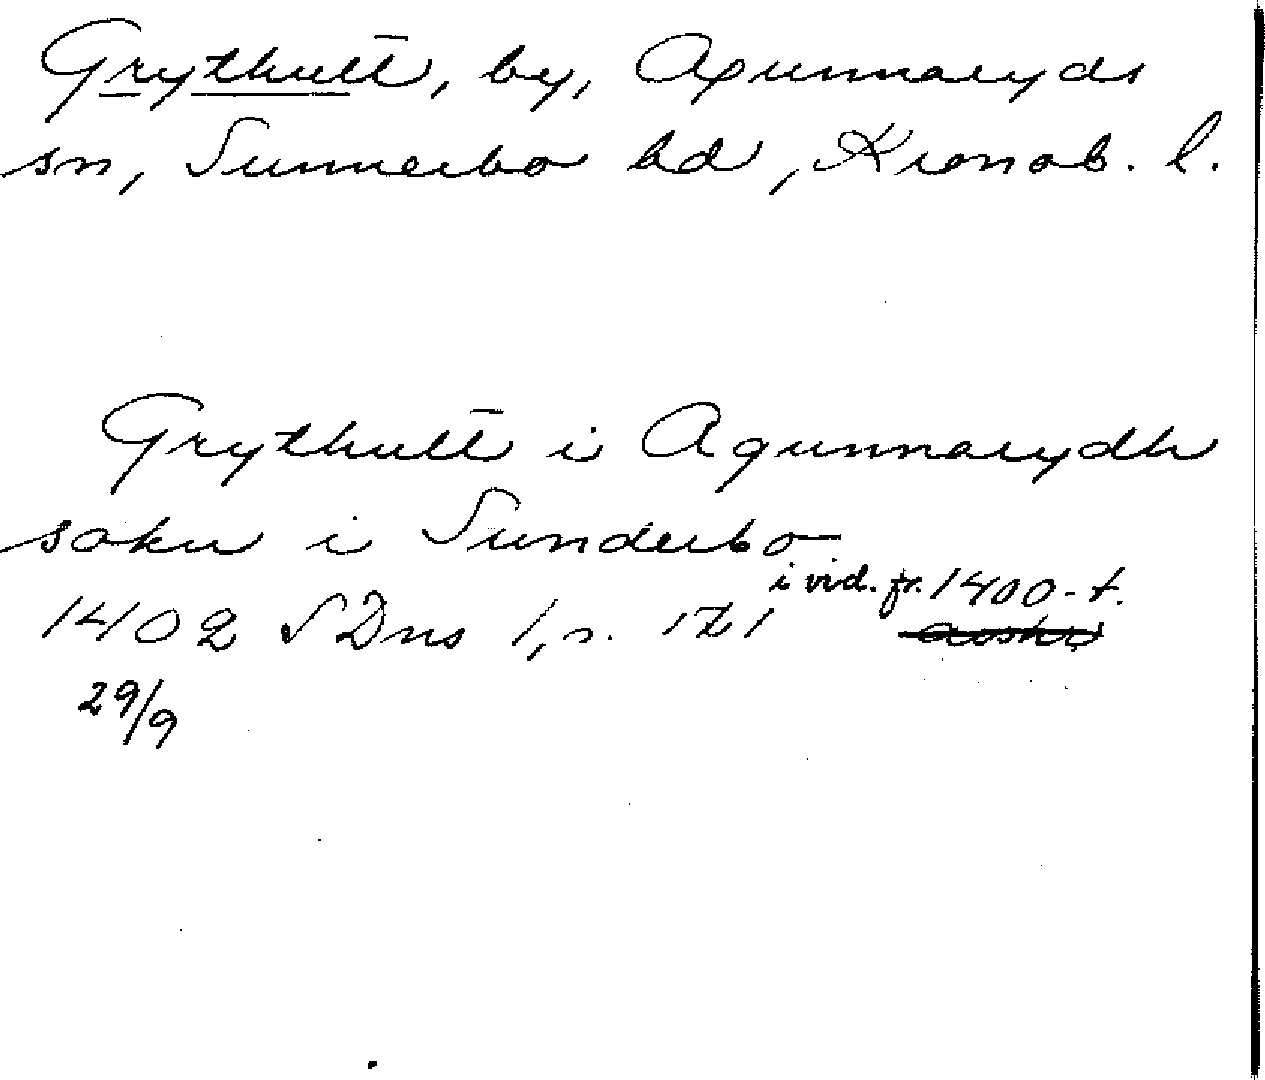 Grythult, by, Agunnaryds
sn, Sunnerbo hd, Kronob. l.
Grythult i Agunnarydh
sokn i Sunderbo
i vid. fr. 1400-t.
1402 SDns 1, s. 121
29/9